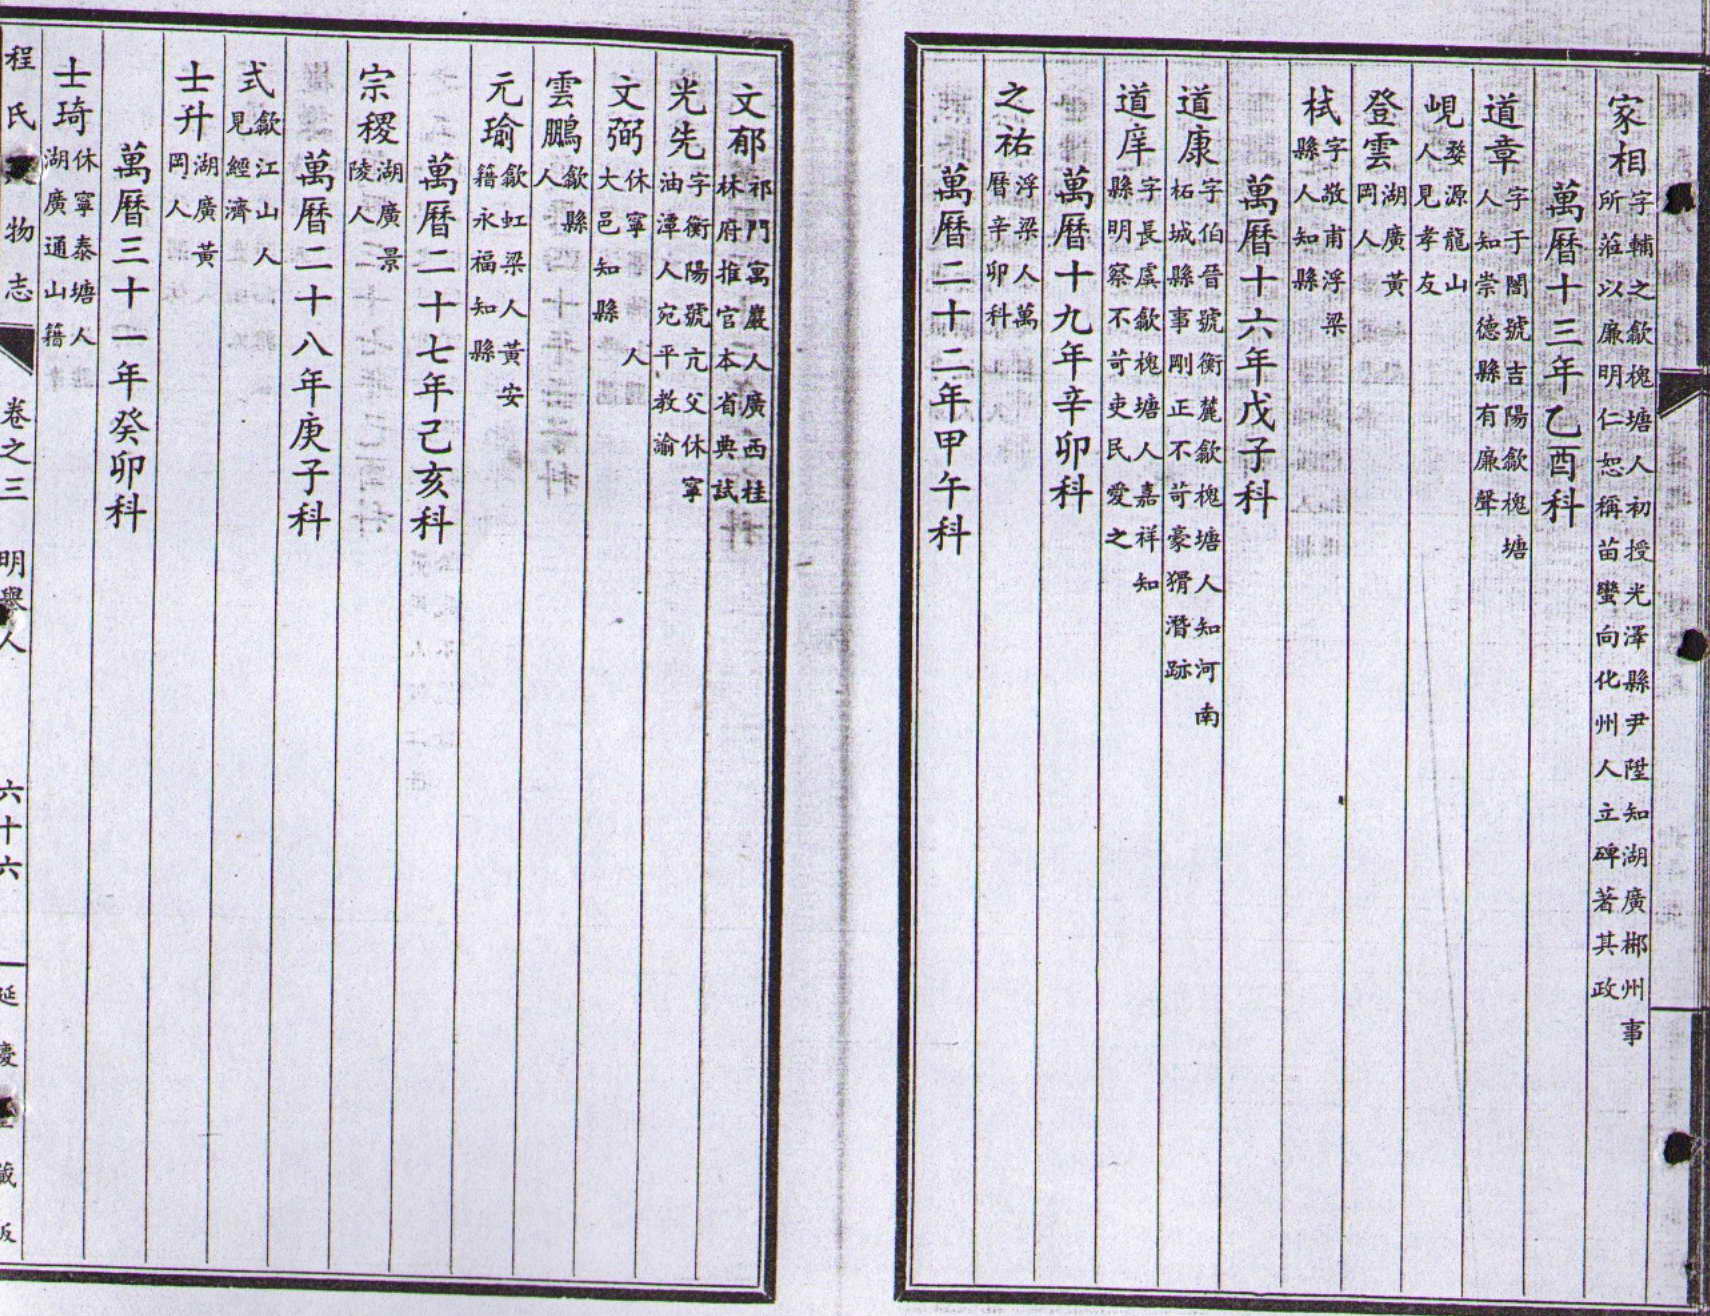 家相字輔之歙槐塘人初授光澤縣尹陞知湖廣郴州事
所蒞以廉明仁恕稱苗蠻向化州人立碑著其政
萬曆十三年乙酉科
道章字于闇號吉陽歙槐塘
人知崇德縣有廉聲
峴婺源龍山
人見孝友
登雲湖廣黃
岡人
栻字敬甫浮梁
縣人知縣
萬曆十六年戊子科
道康字伯晉號衡麓歙槐塘人知河南
柘城縣事剛正不苛豪猾潛跡
道庠字長虞歙槐塘人嘉祥知
縣明察不苛吏民愛之
萬曆十九年辛卯科
之祐浮梁人萬
曆辛卯科
萬曆二十二年甲午科
文郁祁門寓巖人廣西桂
林府推官本省典試
光先字衡陽號亢父休寧
油潭人宛平教諭
文弼休寧人
大邑知縣
雲鵬歙縣
人
元瑜歙虹梁人黃安
籍永福知縣
萬曆二十七年己亥科
宗稷湖廣景
陵人
萬曆二十八年庚子科
式歙江山人
見經濟
士升湖廣黃
岡人
萬曆三十一年癸卯科
士琦休寧泰塘人
湖廣通山籍
程氏物志 卷之三 明舉人 六十六 延慶藏版